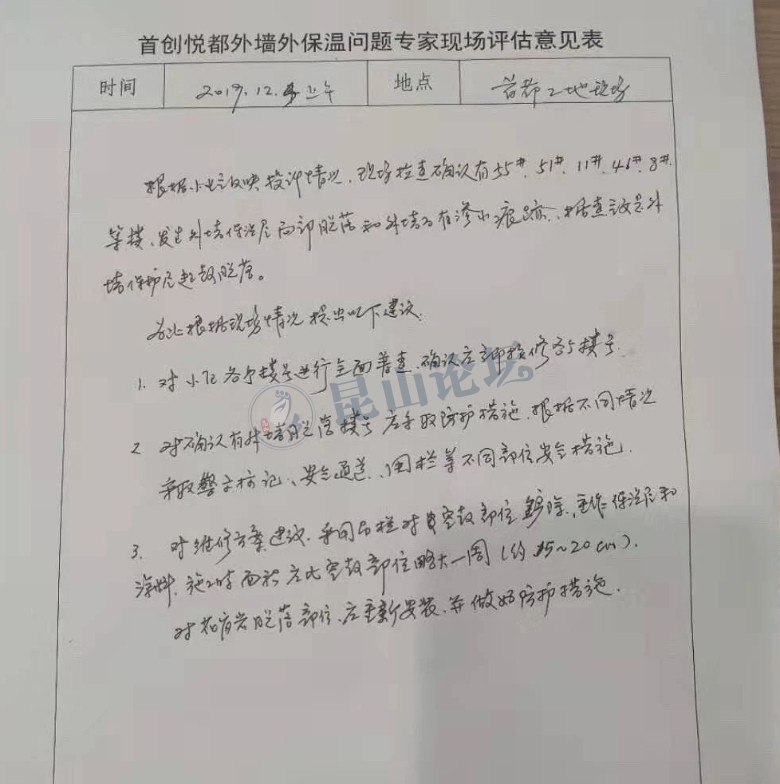 首创悦都外墙外保温问题专家现场评估意见表
时间 2019.12. 上午 地点 首都工地现场
根据小区反映投诉情况,现场检查确认有55#、51#、11#、46#、8#
等楼,发生外墙保温层局部脱落和外墙面有渗水痕迹,检查主要是外
墙保护层起鼓脱落。
为此根据现场情况提出以下建议:
1. 对小区各个楼号进行全面普查,确认应部位维修各楼号.
2. 对确认有外墙脱落楼号应采取防护措施,根据不同情况
采取警示标记、安全通道、围栏等不同部位安全措施.
3. 对维修方案建议,采用 对其空鼓部位铲除,重作保温层和
涂料,施工时面积应比空鼓部位略大一周(约15~20cm).
对花岗岩脱落部位,应重新安装,并做好防护措施.
昆山论坛